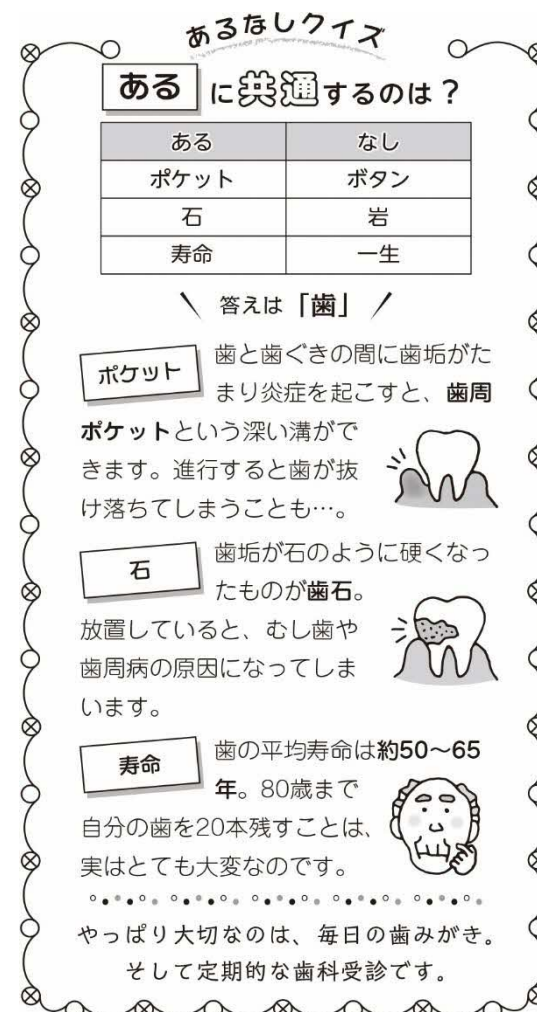 あるなしクイズ
ある に共通するのは？
ある なし
ポケット ボタン
石 岩
寿命 一生
答えは「歯」
ポケット
歯と歯ぐきの間に歯垢がた
まり炎症を起こすと、歯周
ポケットという深い溝がで
きます。進行すると歯が抜
け落ちてしまうことも…。
石
歯垢が石のように硬くなっ
たものが歯石。
放置していると、むし歯や
歯周病の原因になってしま
います。
寿命
歯の平均寿命は約50～65
年。80歳まで
自分の歯を20本残すことは、
実はとても大変なのです。
やっぱり大切なのは、毎日の歯みがき。
そして定期的な歯科受診です。